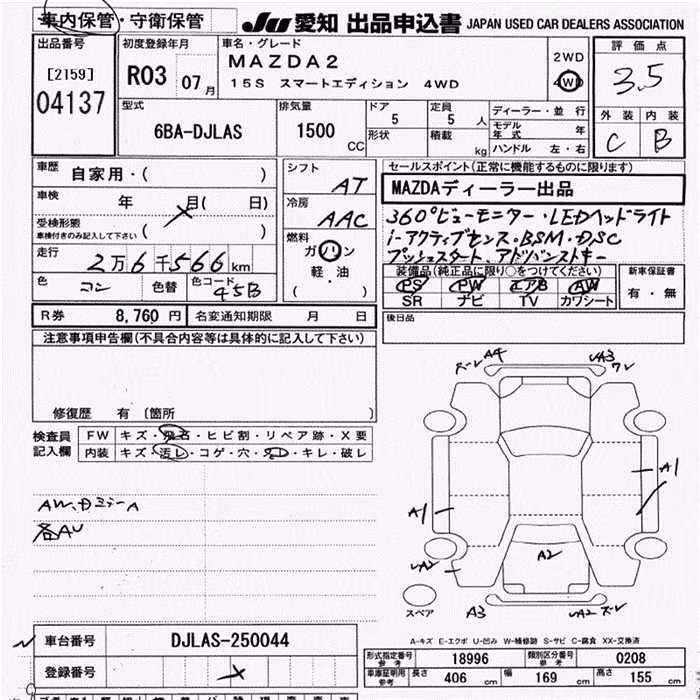 車内保管・守衛保管 JU 愛知 出品申込書 JAPAN USED CAR DEALERS ASSOCIATION
出品番号 初度登録年月 車名・グレード 評価点
[2159] R03 07月 MAZDA2 2WD
04137 15S スマートエディション 4WD 4WD 3.5
型式 排気量 ドア 定員 ディーラー・並行 外装 内装
6BA-DJLAS 1500CC 5 5人 モデル年式 年 C B
形状 積載 kg ハンドル 左・右
車歴 自家用・( ) シフト AT セールスポイント(正常に機能するものに限ります)
車検 年 月( 日) 冷房 AAC MAZDAディーラー出品
受検形態 360°ビューモニター・LEDヘッドライト
車検付きのみ記入して下さい ( ) 燃料 i-アクティブセンス・BSM・DSC
走行 2万6千566km ガソリン プッシュスタート、アドバンストキー
軽・油 装備品(純正品に限り○をつけてください) 新車保証書
色 コン 色替 色コード 45B ( ) PS PW エアB AW 有・無
SR ナビ TV カワシート
R券 8,760円 名変通知期限 月 日 後日品
注意事項申告欄(不具合内容等は具体的に記入して下さい)
修復歴 有 〔箇所 〕
検査員 FW キズ・飛石・ヒビ割・リペア跡・X要
記入欄 内装 キズ・汚レ・コゲ・穴・スレ・キレ・破レ
A4 A3
A1 A1
A2 A2
A3 A2
AW、Dミラー A
各AU
スペア
A-キズ E-エクボ U-凹み W-補修跡 S-サビ C-腐食 XX-交換済
車台番号 DJLAS-250044
登録番号
形式指定番号 参考 18996 類別区分番号 参考 0208
車庫証明用 参考 長さ 406cm 幅 169cm 高さ 155cm